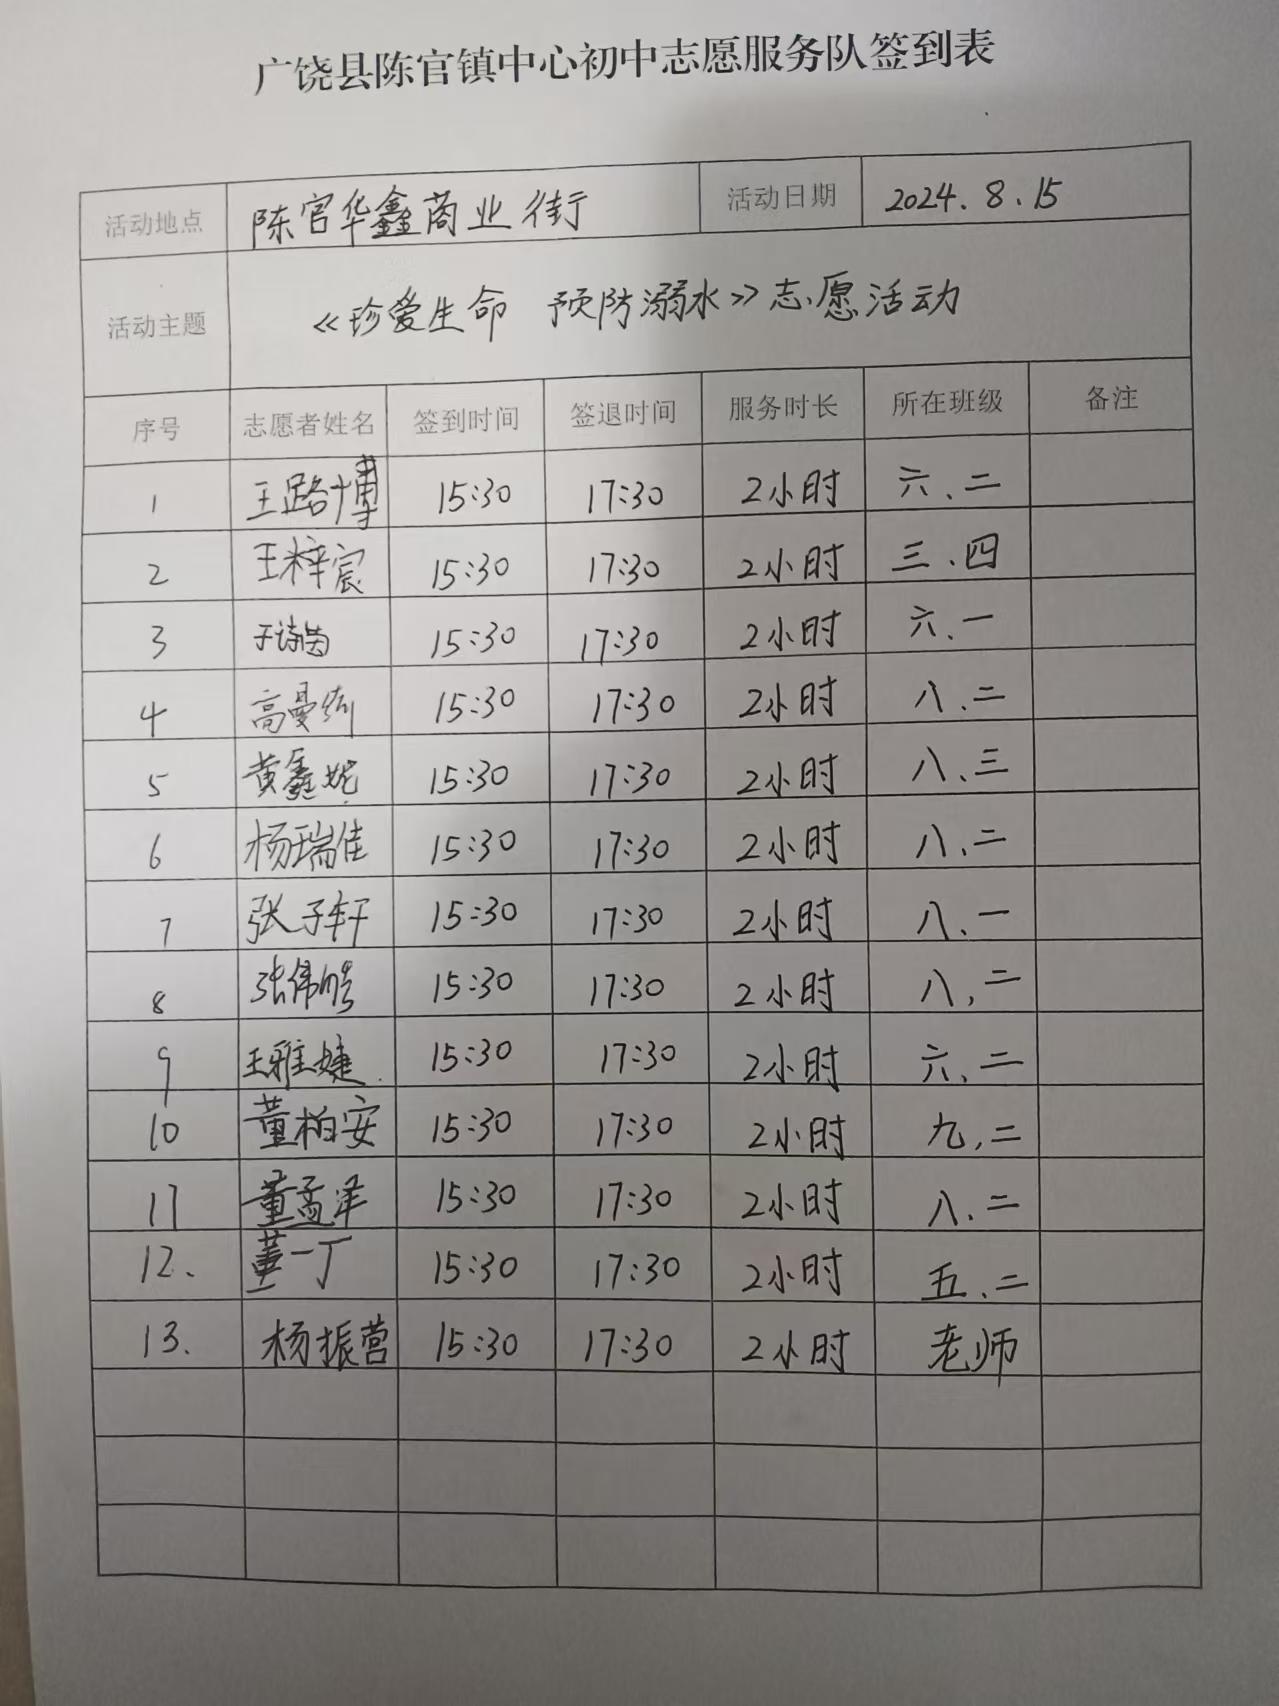 广饶县陈官镇中心初中志愿服务队签到表
活动地点 陈官华鑫商业街 活动日期 2024.8.15
活动主题 《珍爱生命 预防溺水》志愿活动
序号 志愿者姓名 签到时间 签退时间 服务时长 所在班级 备注
1 王路博 15:30 17:30 2小时 六、二
2 王梓宸 15:30 17:30 2小时 三、四
3 于诗茵 15:30 17:30 2小时 六、一
4 高曼 15:30 17:30 2小时 八、二
5 黄鑫妮 15:30 17:30 2小时 八、三
6 杨瑞佳 15:30 17:30 2小时 八、二
7 张子轩 15:30 17:30 2小时 八、一
8 张伟皓 15:30 17:30 2小时 八、二
9 王雅婕 15:30 17:30 2小时 六、二
10 董柏安 15:30 17:30 2小时 九、二
11 董孟洋 15:30 17:30 2小时 八、二
12. 董一丁 15:30 17:30 2小时 五、二
13. 杨振营 15:30 17:30 2小时 老师